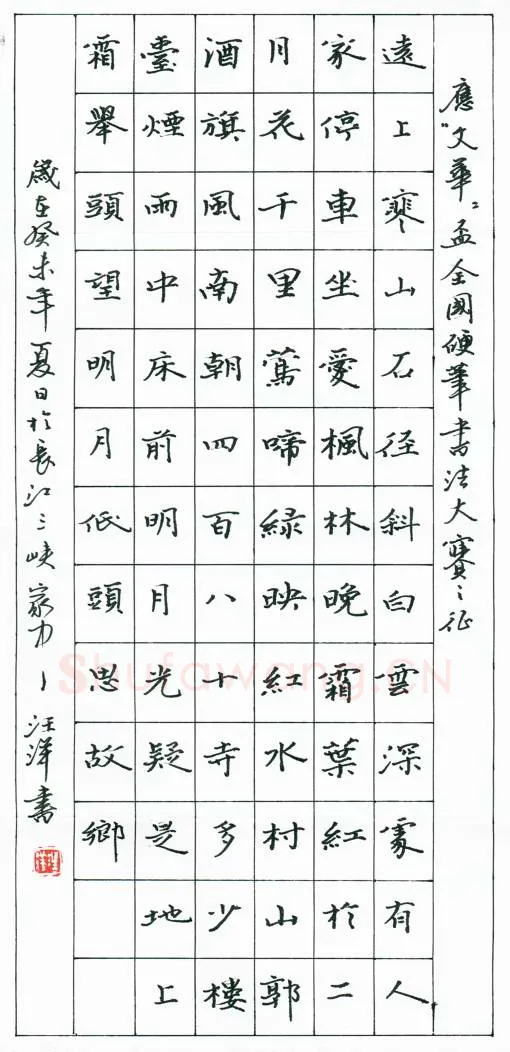 應"文華"盃全國硬筆書法大賽之征
遠上寒山石径斜白雲深處有人
家停車坐愛楓林晚霜葉紅於二
月花千里鶯啼緑映紅水村山郭
酒旗風南朝四百八十寺多少楼
臺煙雨中床前明月光疑是地上
霜舉頭望明月低頭思故鄉
歲在癸未年夏日於長江三峽汪洋書
Shufawang.CN